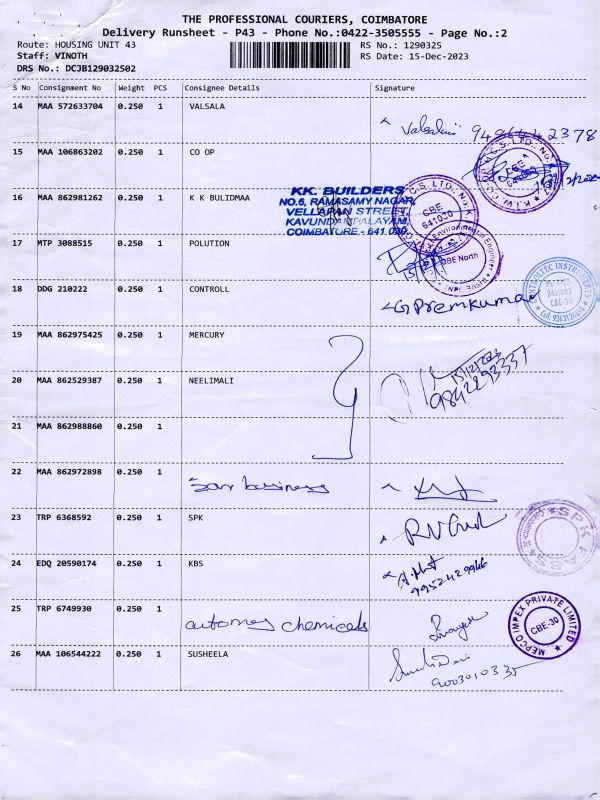 THE PROFESSIONAL COURIERS, COIMBATORE
Delivery Runsheet - P43 - Phone No.:0422-3505555 - Page No.:2
Route: HOUSING UNIT 43 RS No.: 1290325
Staff: VINOTH RS Date: 15-Dec-2023
DRS No.: DCJB129032502
S No Consignment No Weight PCS Consignee Details Signature
14 MAA 572633704 0.250 1 VALSALA
15 MAA 106863202 0.250 1 CO OP
16 MAA 862981262 0.250 1 K K BULIDMAA
KK. BUILDERS
NO.6, RAMASAMY NAGAR,
VELLAPAN STREET,
KAVUNDANPALAYAM,
COIMBATORE - 641 030
CBE
641030
CBE
641030
17 MTP 3088515 0.250 1 POLUTION
CBE North
18 DDG 210222 0.250 1 CONTROLL G Premkumar
CBE-30
19 MAA 862975425 0.250 1 MERCURY
15/12/2023
9842293337
20 MAA 862529387 0.250 1 NEELIMALI
21 MAA 862988860 0.250 1
22 MAA 862972898 0.250 1 San business
23 TRP 6368592 0.250 1 SPK
SPK FABS
24 EDQ 20590174 0.250 1 KBS
9952429946
25 TRP 6749930 0.250 1 automes chemicals
MEPCO IMPEX PRIVATE LIMITED
CBE-30
26 MAA 106544222 0.250 1 SUSHEELA
9003010335